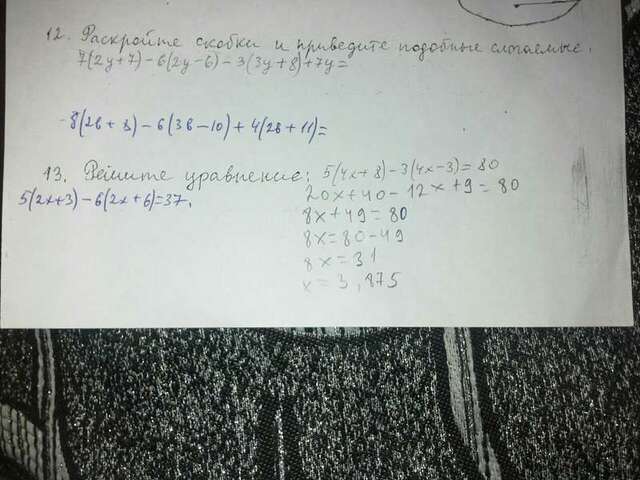 12. Раскройте скобки и приведите подобные слагаемые.
7(2y+7)-6(2y-6)-3(3y+8)+7y=
-8(2в+8)-6(3в-10)+4(2в+11)=
13. Решите уравнение: 5(4x+8)-3(4x-3)=80
5(2x+3)-6(2x+6)=37.
20x+40-12x+9=80
8x+49=80
8x=80-49
8x=31
x=3,875